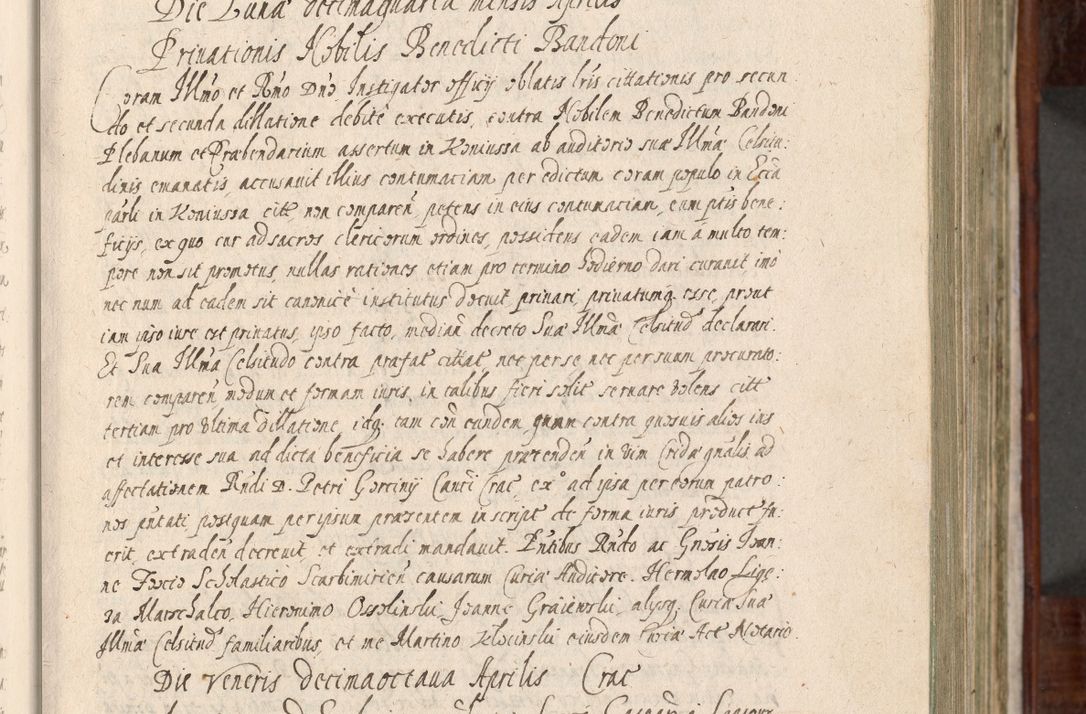 Die Lunæ decimaquarta mensis Aprilis
Priuationis Nobilis Benedicti Bandoni
Coram Illmo et Rmo Dno Instigator officij oblatis lris cittationis pro secun:
do et secunda dillatione debitè executis, contra Nobilem Benedictum Bandoni
Plebanum et Præbendarium assertum in Koniussa ab auditorio suæ Illmæ Celsitu:
dinis emanatis, accusauit illius contumaciam per edictum coram populo in Eccia
parli in Koniussa citt non comparen, petens in eius contumaciam, eum ptis bene:
ficijs, ex quo cur ad sacros clericorum ordines, possidens eadem iam a multo tem:
pore non sit promotus, nullas rationes etiam pro termino hodierno dari curauit, imò
nec num ad eadem sit canonicè institutus docuit, priuari, priuatumq esse, prout
iam ipso iure est priuatus, ipso facto, median decreto Suæ Illmæ Celsitud declarari.
Et Sua Illma Celsitudo contra præfat cittat nec per se nec per suum procurato:
rem comparen modum et formam iuris, in talibus fieri solit seruare volens citt
tertiam pro vltima dillatione, idq. tam con eundem quam contra quosuis alios ius
et interesse sua ad dicta beneficia se habere prætenden in vim Cridæ gnalis, ad
affectationem Rndi D. Petri Gorcinij Canci Crac, exº ad ipsa per eorum patro:
nos pntati, postquam per ipsum præsentem in script de forma iuris product fu:
erit, extraden decreuit, et extradi mandauit. Pntibus Rndo ac Gnosis Ioan:
ne Foxio Scholastico Scarbimirien causarum Curiæ Auditore. Hermolao Lige:
za Marschalco, Hieronimo Ossolinski, Ioanne Graiewski, alijsq. Curiæ Suæ
Illmæ Celsitud familiaribus, et me Martino Klocinski eiusdem Curiæ Act Notario.
Die Veneris decimaoctaua Aprilis Crac